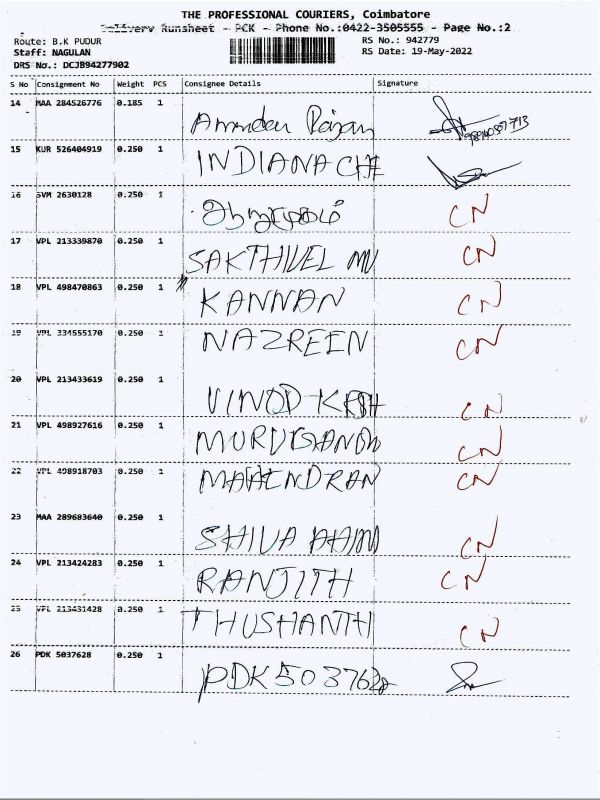 THE PROFESSIONAL COURIERS, Coimbatore
Delivery Runsheet - PCK - Phone No.:0422-3505555 - Page No.:2
Route: B.K PUDUR RS No.: 942779
Staff: NAGULAN RS Date: 19-May-2022
DRS No.: DCJB94277902
S No Consignment No Weight PCS Consignee Details Signature
14 MAA 284526776 0.185 1
15 KUR 526404919 0.250 1 INDIANA
16 SVM 2630128 0.250 1 CN
17 VPL 213339870 0.250 1 SAKTHIVEL CN
18 VPL 498470863 0.250 1 KANNAN CN
19 VPL 334555170 0.250 1 NAZREEN CN
20 VPL 213433619 0.250 1 VINOD CN
21 VPL 498927616 0.250 1 CN
22 VPL 498918703 0.250 1 MAHENDRAN CN
23 MAA 289683640 0.250 1 SHIVA CN
24 VPL 213424283 0.250 1 RANJITH CN
25 VPL 213431428 0.250 1 THUSHANTH CN
26 PDK 5037628 0.250 1 PDK5037628